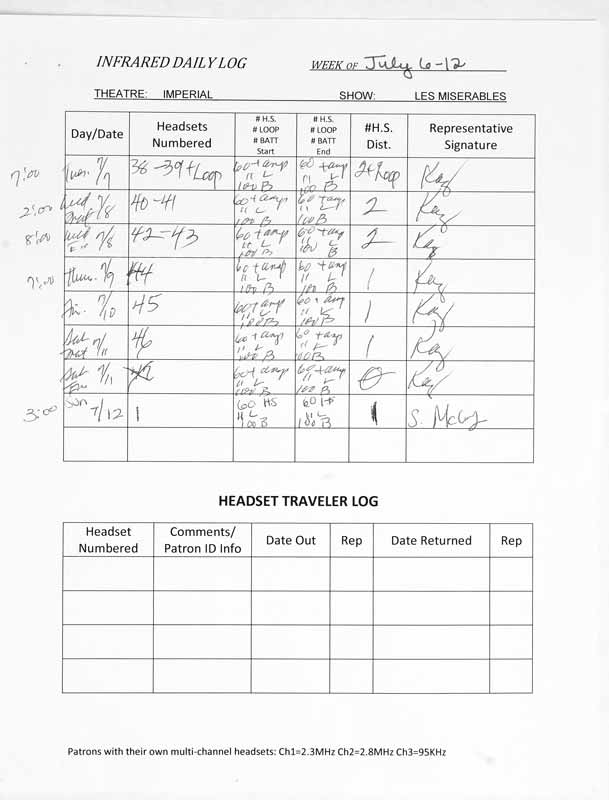 INFRARED DAILY LOG WEEK OF July 6-12
THEATRE: IMPERIAL SHOW: LES MISERABLES
Day/Date Headsets Numbered # H.S. # LOOP # BATT Start # H.S. # LOOP # BATT End #H.S. Dist. Representative Signature
7:00 Tues. 7/7 38-39 + Loop 60 + amp 11 L 100 B 60 + amp 11 L 100 B 2 + Loop Kay
2:00 Wed Mat 7/8 40-41 60 + amp 11 L 100 B 60 + amp 11 L 100 B 2 Kay
8:00 Wed Eve 7/8 42-43 60 + amp 11 L 100 B 60 + amp 11 L 100 B 2 Kay
7:00 Thur. 7/9 44 60 + amp 11 L 100 B 60 + amp 11 L 100 B 1 Kay
Fri. 7/10 45 60 + amp 11 L 100 B 60 + amp 11 L 100 B 1 Kay
Sat Mat 7/11 46 60 + amp 11 L 100 B 60 + amp 11 L 100 B 1 Kay
Sat Eve 7/11 60 + amp 11 L 100 B 60 + amp 11 L 100 B 0 Kay
3:00 Sun 7/12 1 60 HS 11 L 100 B 60 HS 11 L 100 B 1 S. McCoy
HEADSET TRAVELER LOG
Headset Numbered Comments/ Patron ID Info Date Out Rep Date Returned Rep
Patrons with their own multi-channel headsets: Ch1=2.3MHz Ch2=2.8MHz Ch3=95KHz